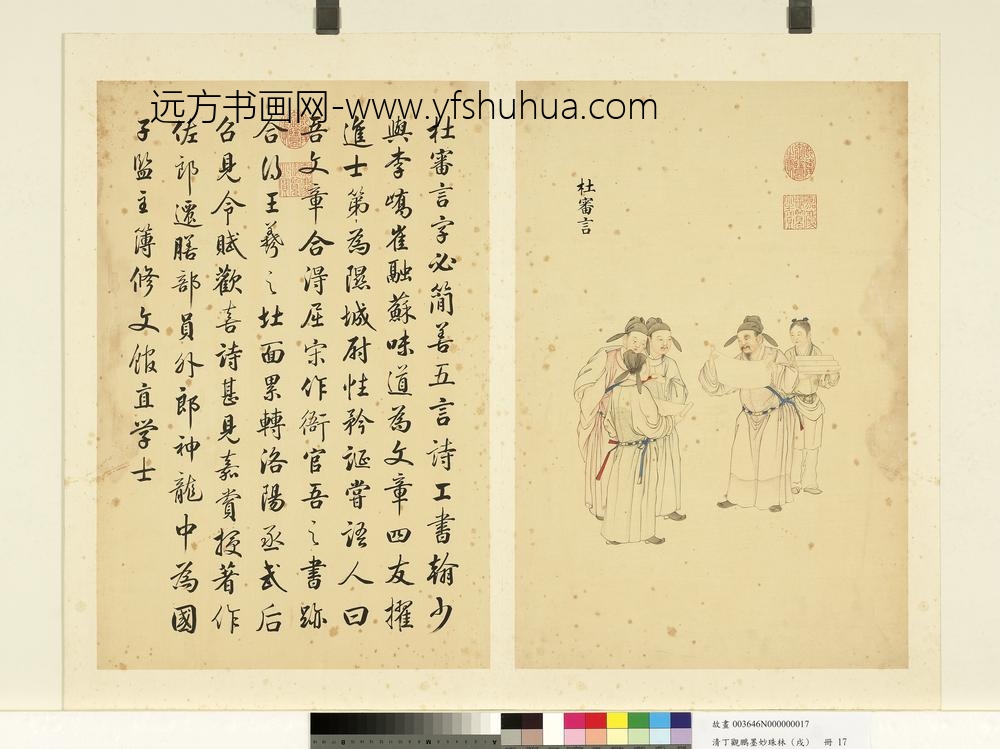 远方书画网-www.yfshuhua.com
杜審言
杜審言字必簡善五言詩工書翰少
與李嶠崔融蘇味道為文章四友擢
進士第為隰城尉性矜誕嘗語人曰
吾文章合得屈宋作衙官吾之書跡
合得王羲之北面累轉洛陽丞武后
召見令賦歡喜詩甚見嘉賞授著作
佐郎遷膳部員外郎神龍中為國
子監主簿修文館直学士
故畫 003646N000000017
清丁觀鵬墨妙珠林（戌） 冊 17